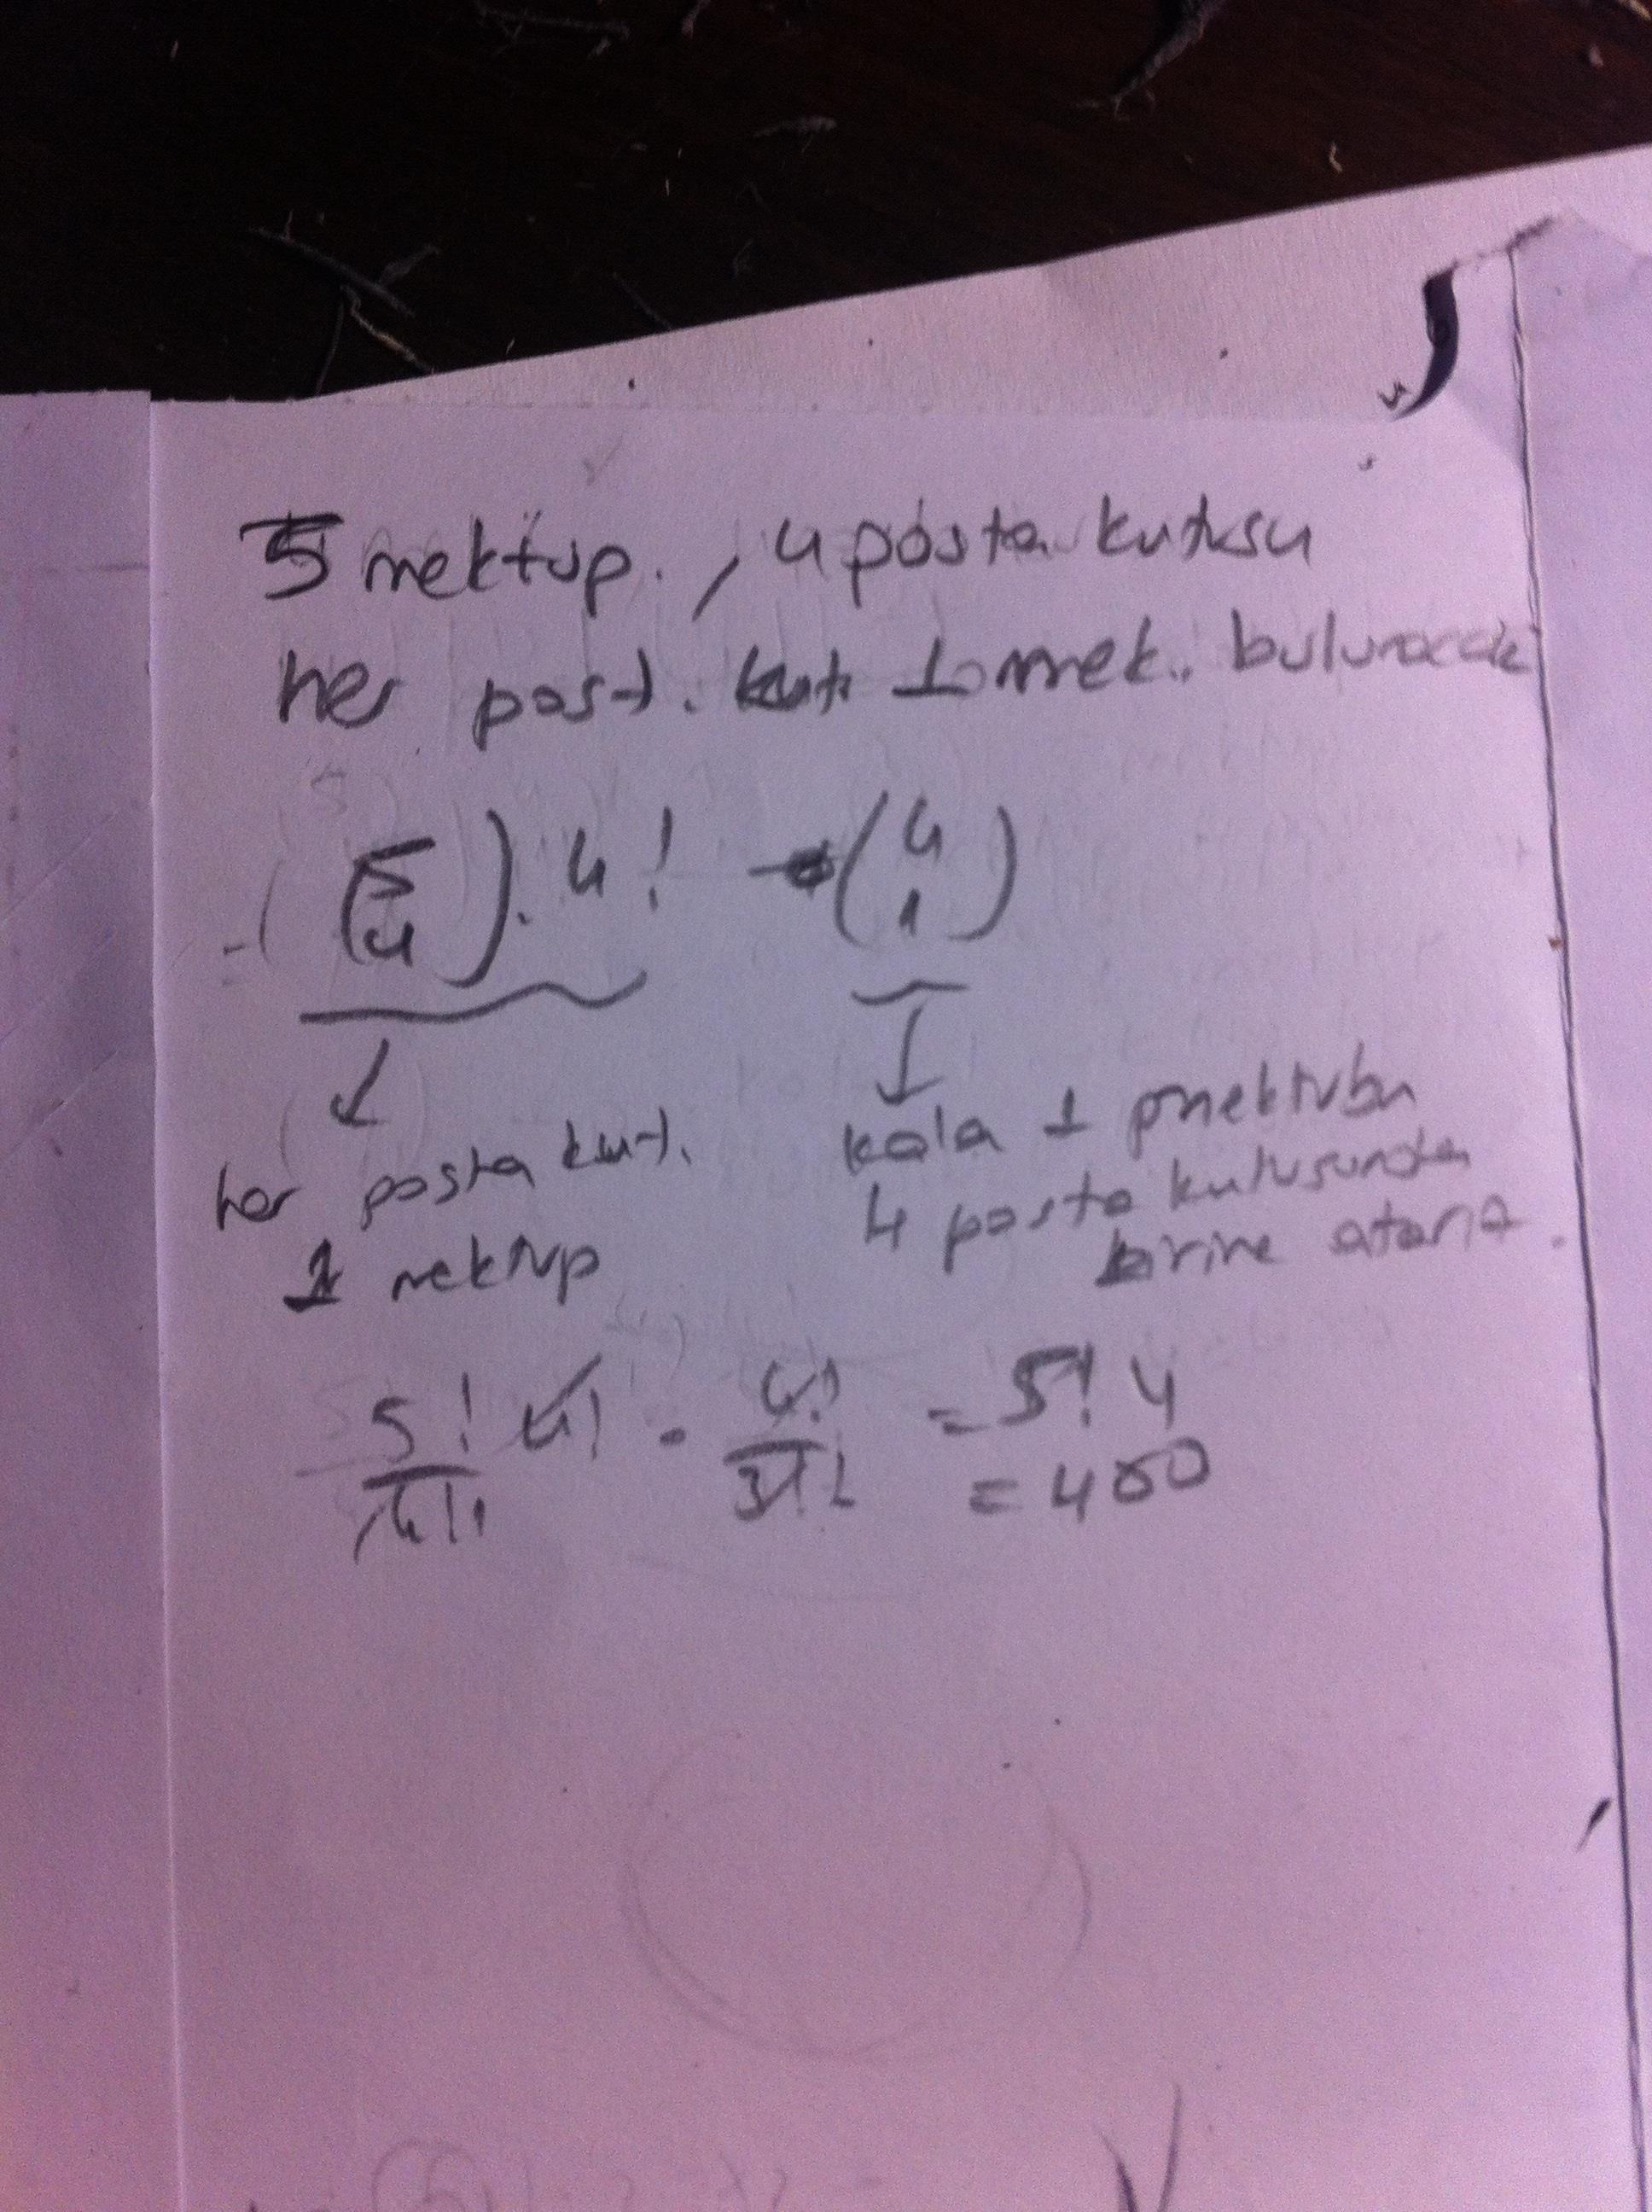 5 mektup. , 4 posta kutusu
her post. kut 1 mek. bulunacak
= (5 4) . 4! . (4 1)
her posta kut. 1 mektup
kala 1 mektubu 4 posta kutusundan birine atarız.
5!/4!1 4! . 4!/3!1 = 5! 4
= 480